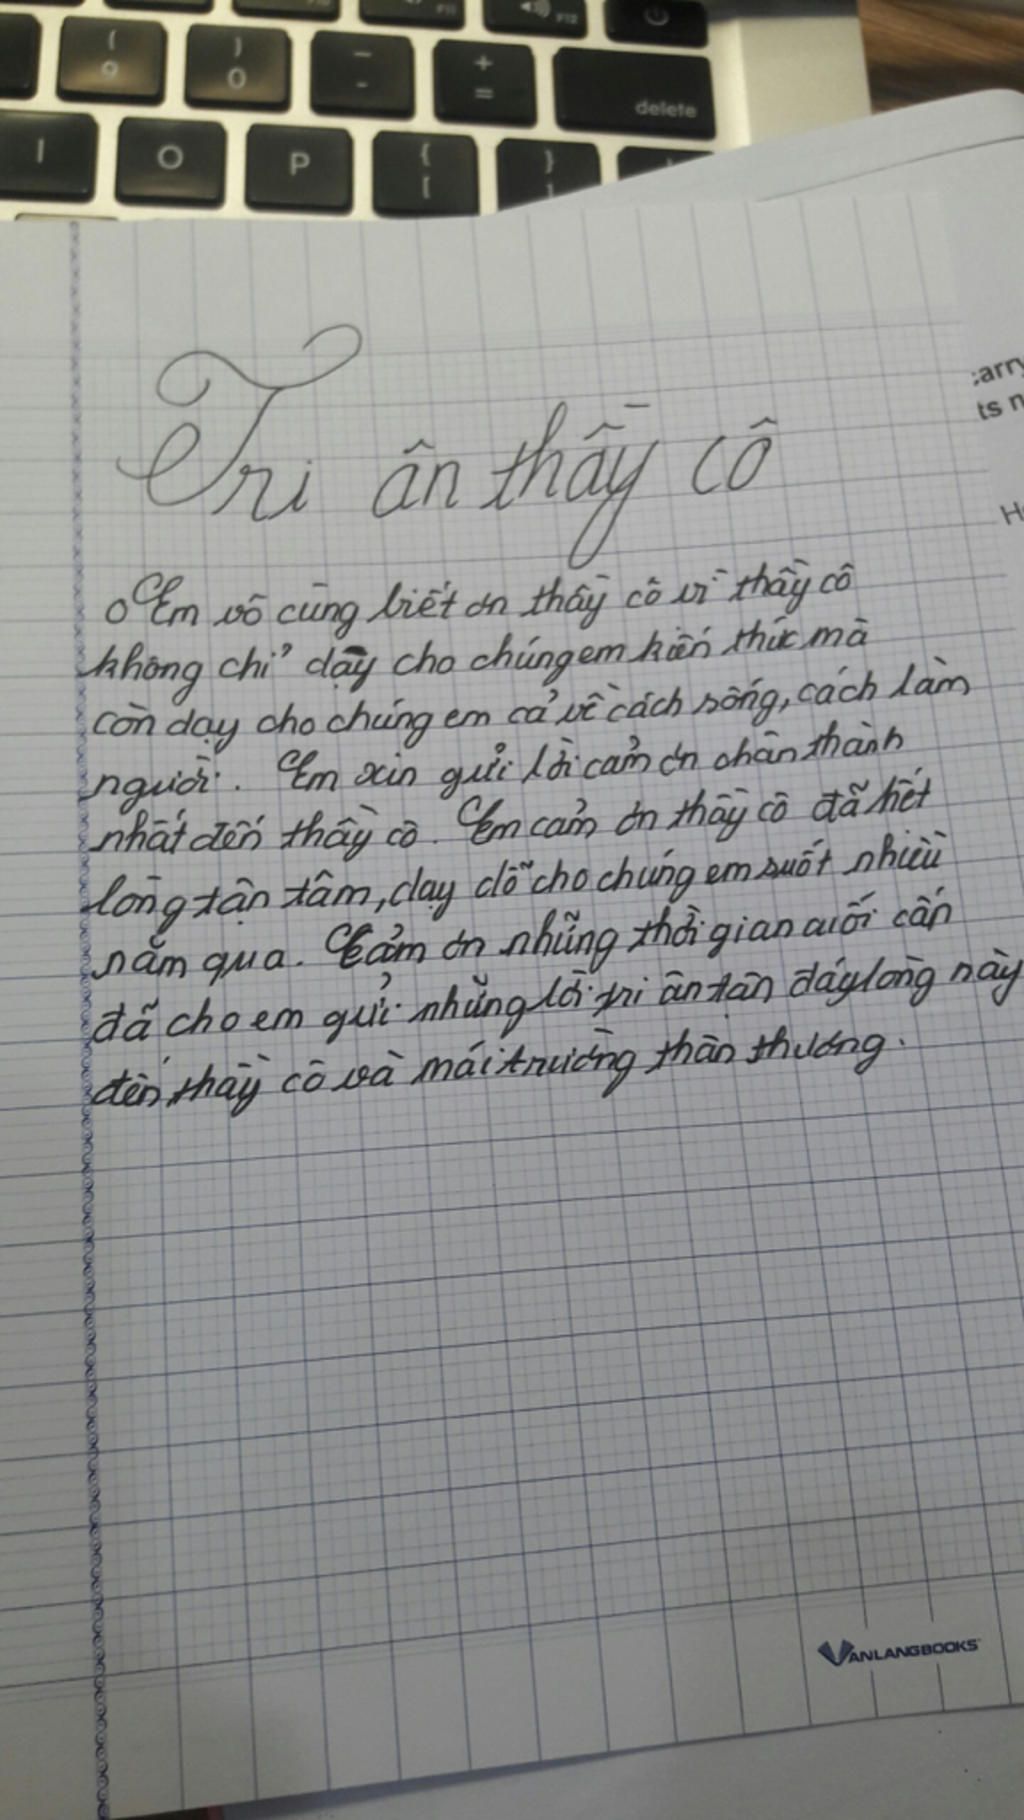 F11
F12
(
9
)
0
-
-
+
=
delete
I
O
P
{
[
}
]
carry
ts n
H
Tri ân thầy cô
Em vô cùng biết ơn thầy cô vì thầy cô
không chỉ dạy cho chúng em kiến thức mà
còn dạy cho chúng em cả về cách sống, cách làm
người. Em xin gửi lời cảm ơn chân thành
nhất đến thầy cô. Em cảm ơn thầy cô đã hết
lòng tận tâm, dạy dỗ cho chúng em suốt nhiều
năm qua. Cảm ơn những thời gian cuối cấp
đã cho em gửi những lời tri ân tận đáy lòng này
đến thầy cô và mái trường thân thương.
VANLANGBOOKS